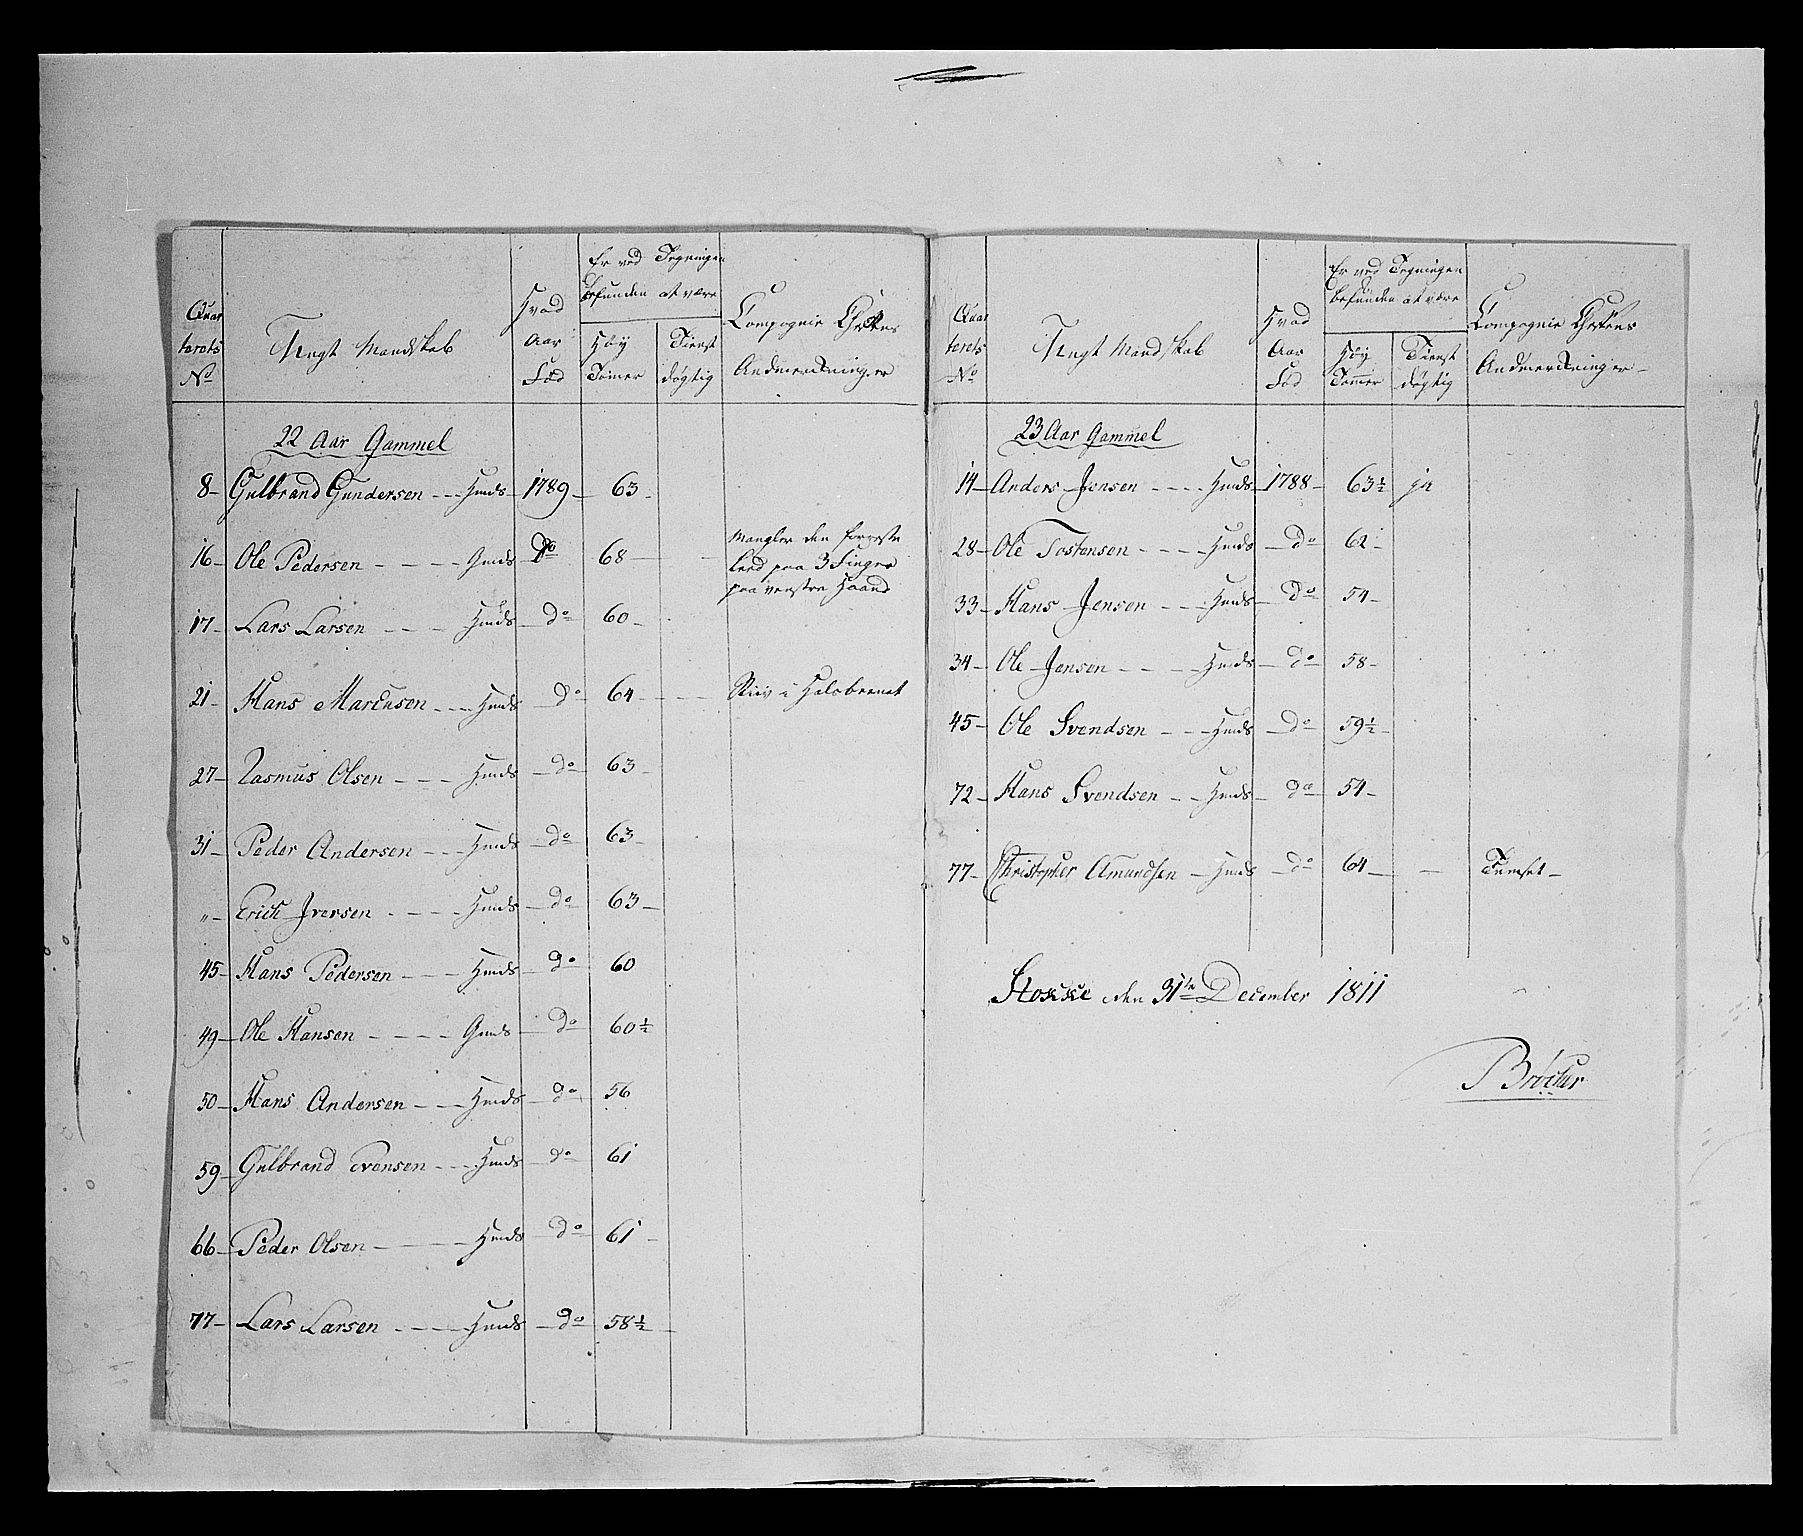 Quar
terets
No
Ungt Mandskab
Hvad
Aar
Fød
Er ved Tegningen
befunden at være
Høy
Tomer
Tienst
døgtig
Compagnie Chefens
Andmerkninger
22 Aar Gammel
8 - Gulbrand Gundersen - - - Hmds - 1789 - 63 -
16 - Ole Pedersen - - - - Gmds do 68 - - Mangler den forreste
Leed paa 3 Fingre
paa venstre Haand
17 - Lars Larsen - - - Hmds - do - 60 -
21 - Hans Marcusen - - - Hmds - do - 64 - - - Stiiv i Halsbeenet
27 - Rasmus Olsen - - - Hmds - do - 63 -
31 - Peder Andersen - - - Hmds - do - 63 -
" - Erich Iversen - - - - Hmds - do - 63 -
45 - Hans Pedersen - - - Hmds - do - 60
49 - Ole Hansen - - - - Gmds - do - 60½
50 - Hans Andersen - - - Hmds - do - 56
59 - Gulbrand Evensen - - - Hmds - do - 61
66 - Peder Olsen - - - - Hmds - do - 61 -
77 - Lars Larsen - - - - Hmds - do - 58½ -
Quar
terets
No
Ungt Mandskab
Hvad
Aar
Fød
Er ved Tegningen
befunden at være
Høy
Tommer
Tienst
døgtig
Compagnie Chefens
Andmerkninger -
23 Aar Gammel
14 - Anders Jensen - - - - Hmds - 1788 - 63½ ja
28 - Ole Tostensen - - - - Hmds - do - 62 -
33 - Hans Jensen - - - Hmds - do - 54 -
34 - Ole Jensen - - - - Hmds - do - 58 -
45 - Ole Svendsen - - - Hmds - do - 59½ -
72 - Hans Svendsen - - - Hmds - do - 54 -
77 - Christopher Amundsen - Hmds - do - 64 - -
Stokke den 31te December 1811